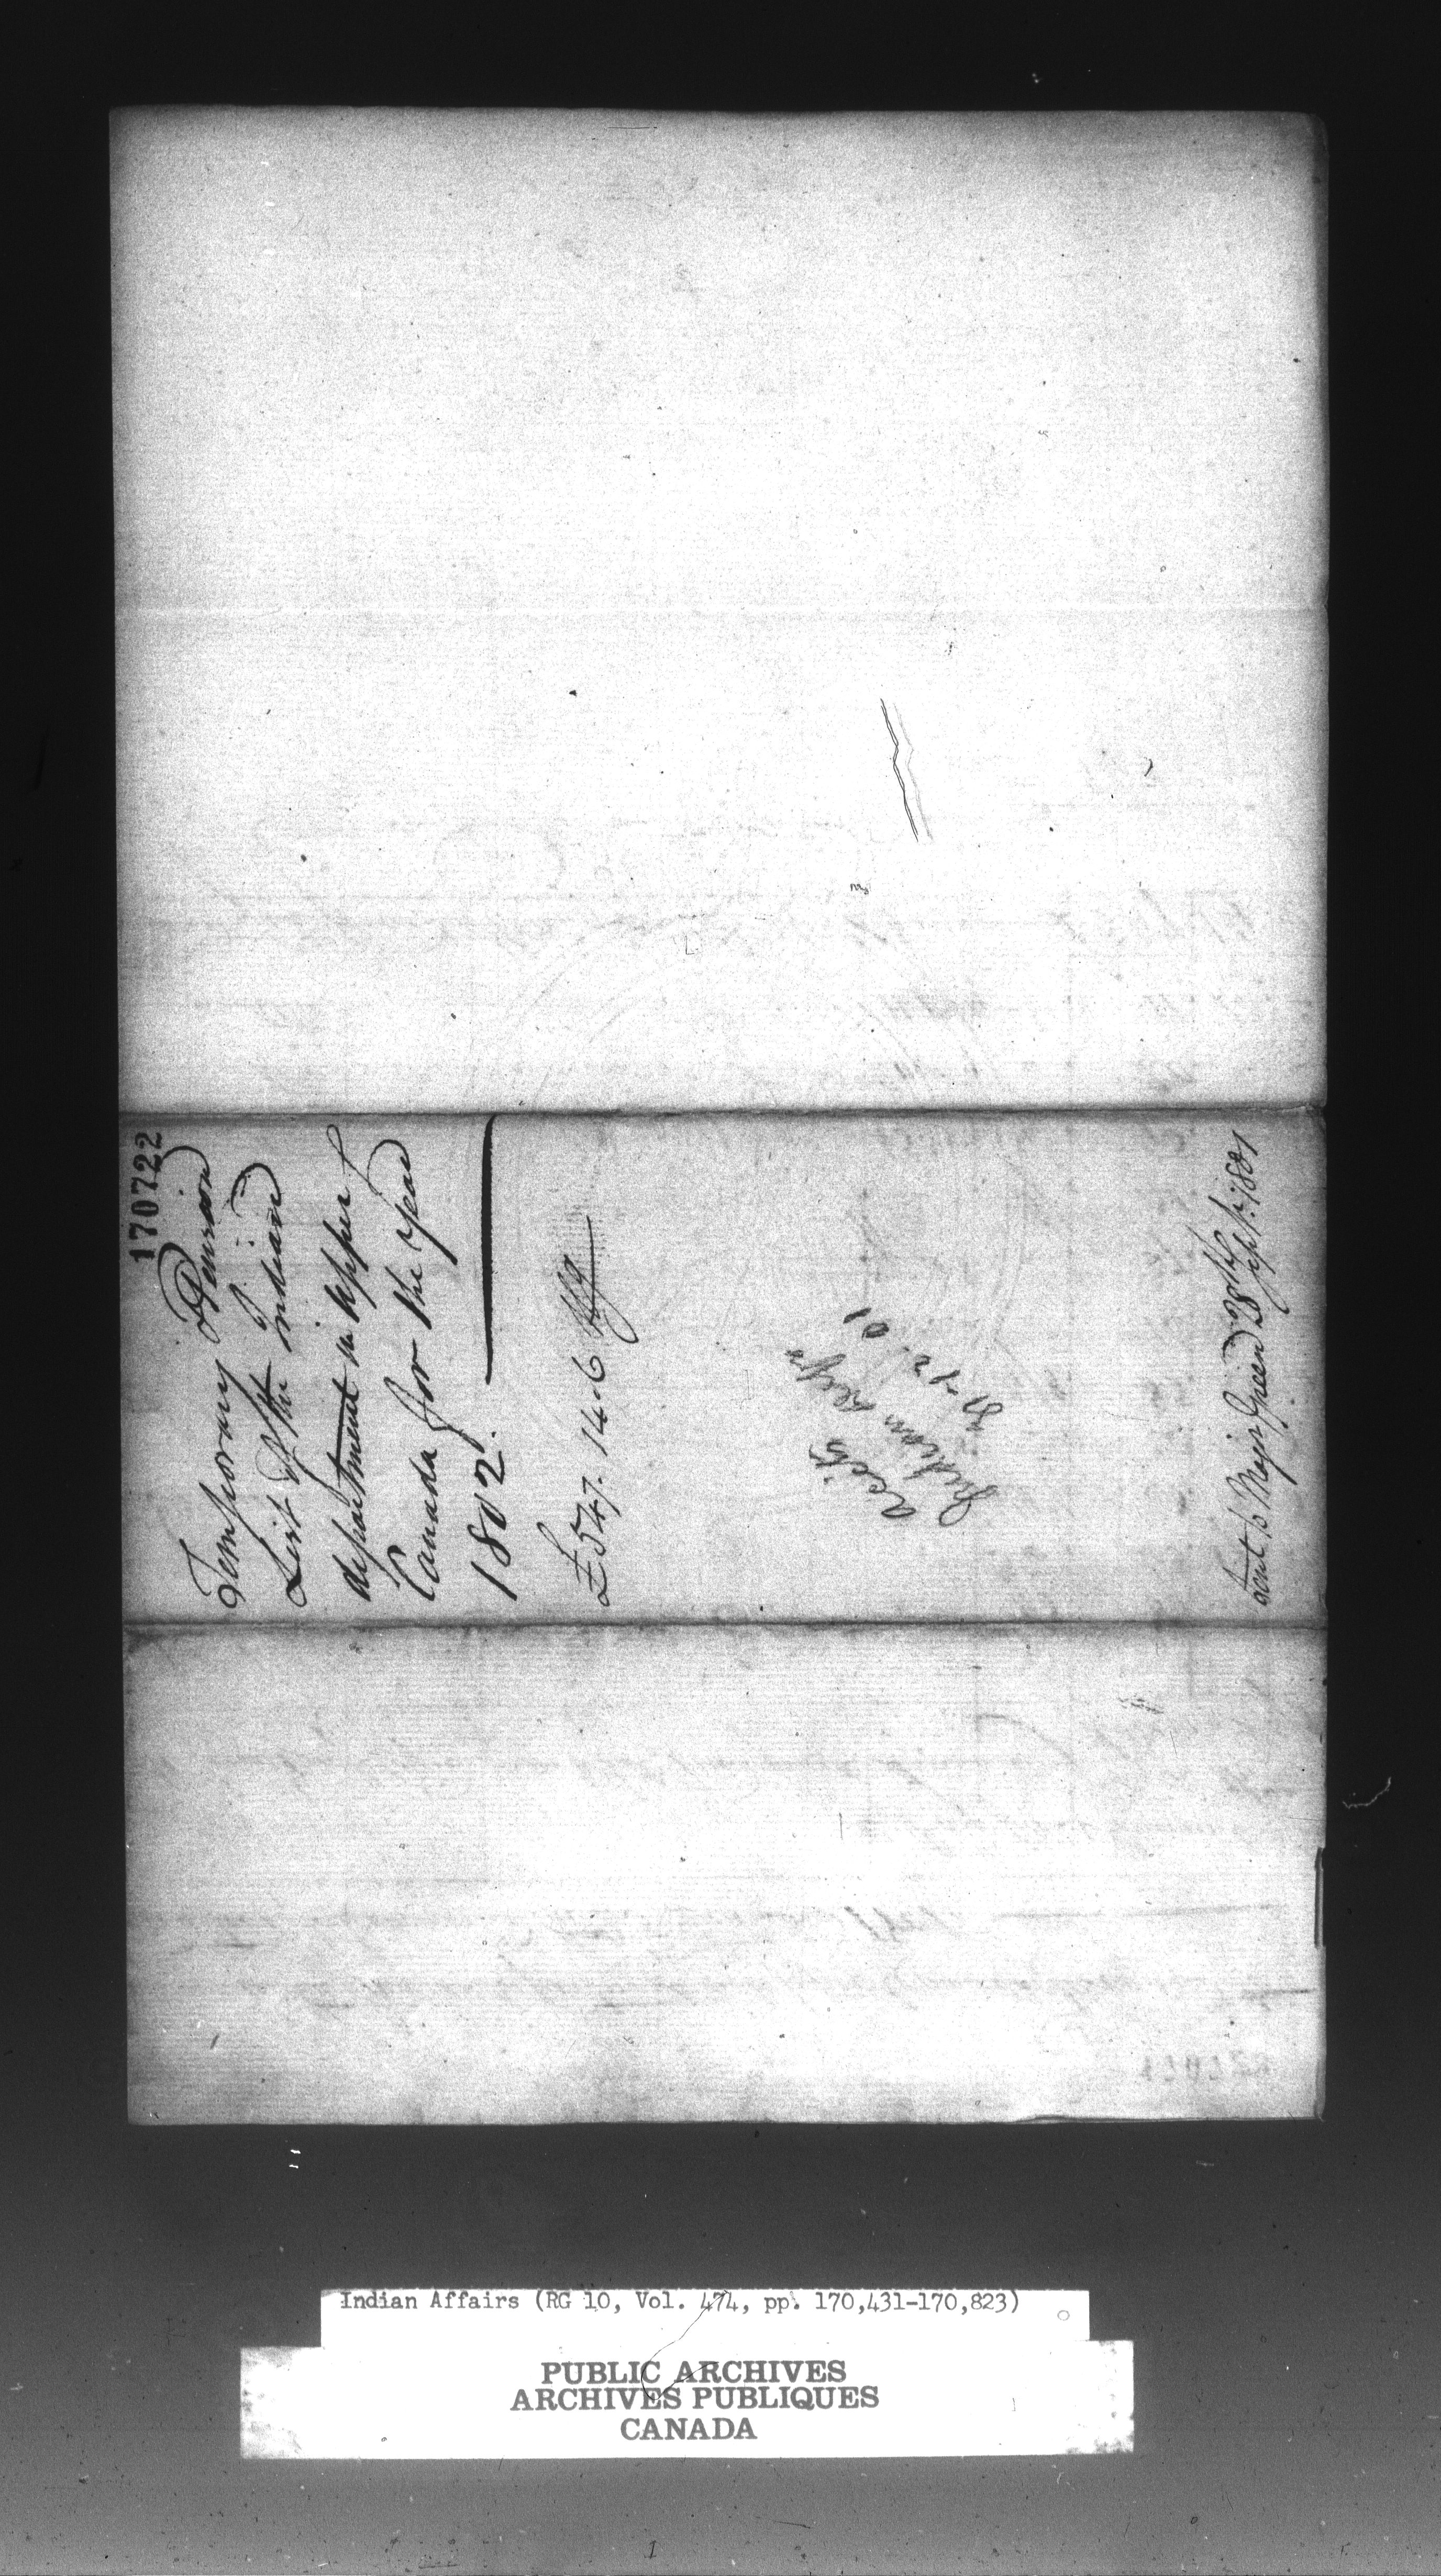 170722
Temporary Pension
List of the Indian
department in Upper
Canada for the year
1802.
£547. 14. 6
accts
Indian
sent to Major Green 28th Sept. 1801
Indian Affairs (RG 10, Vol. 474, pp. 170,431-170,823)
PUBLIC ARCHIVES
ARCHIVES PUBLIQUES
CANADA